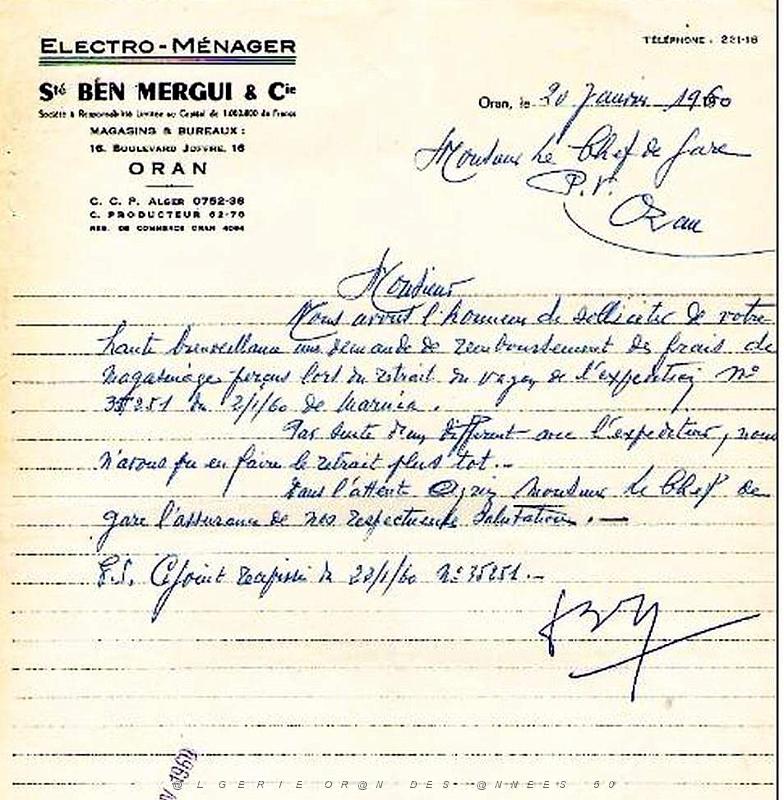 ELECTRO-MÉNAGER
TÉLÉPHONE : 221-18
Sté BEN MERGUI & Cie
Société à Responsabilité Limitée au Capital de 1.062.800 de Francs
MAGASINS & BUREAUX :
16, BOULEVARD JOFFRE, 16
ORAN
C. C. P. ALGER 0752-38
C. PRODUCTEUR 62-70
REG. DE COMMERCE ORAN 4094
Oran, le 20 Janvier 1960
Monsieur le Chef de Gare
P.V.
Oran
Monsieur
Nous avons l'honneur de solliciter de votre
haute bienveillance une demande de remboursement de frais de
magasinage perçus lors du retrait du wagon de l'expedition n°
35251 du 2/1/60 de Marnia.
Par suite d'un différent avec l'expediteur, nous
n'avons pu en faire le retrait plus tot.
Dans l'attente Agréez Monsieur le Chef de
gare l'assurance de nos respectueuses Salutations.
P.S. Ci joint recepissé du 22/1/60 N° 35251.
1960
@LGERIE OR@N DES @NNEES 50